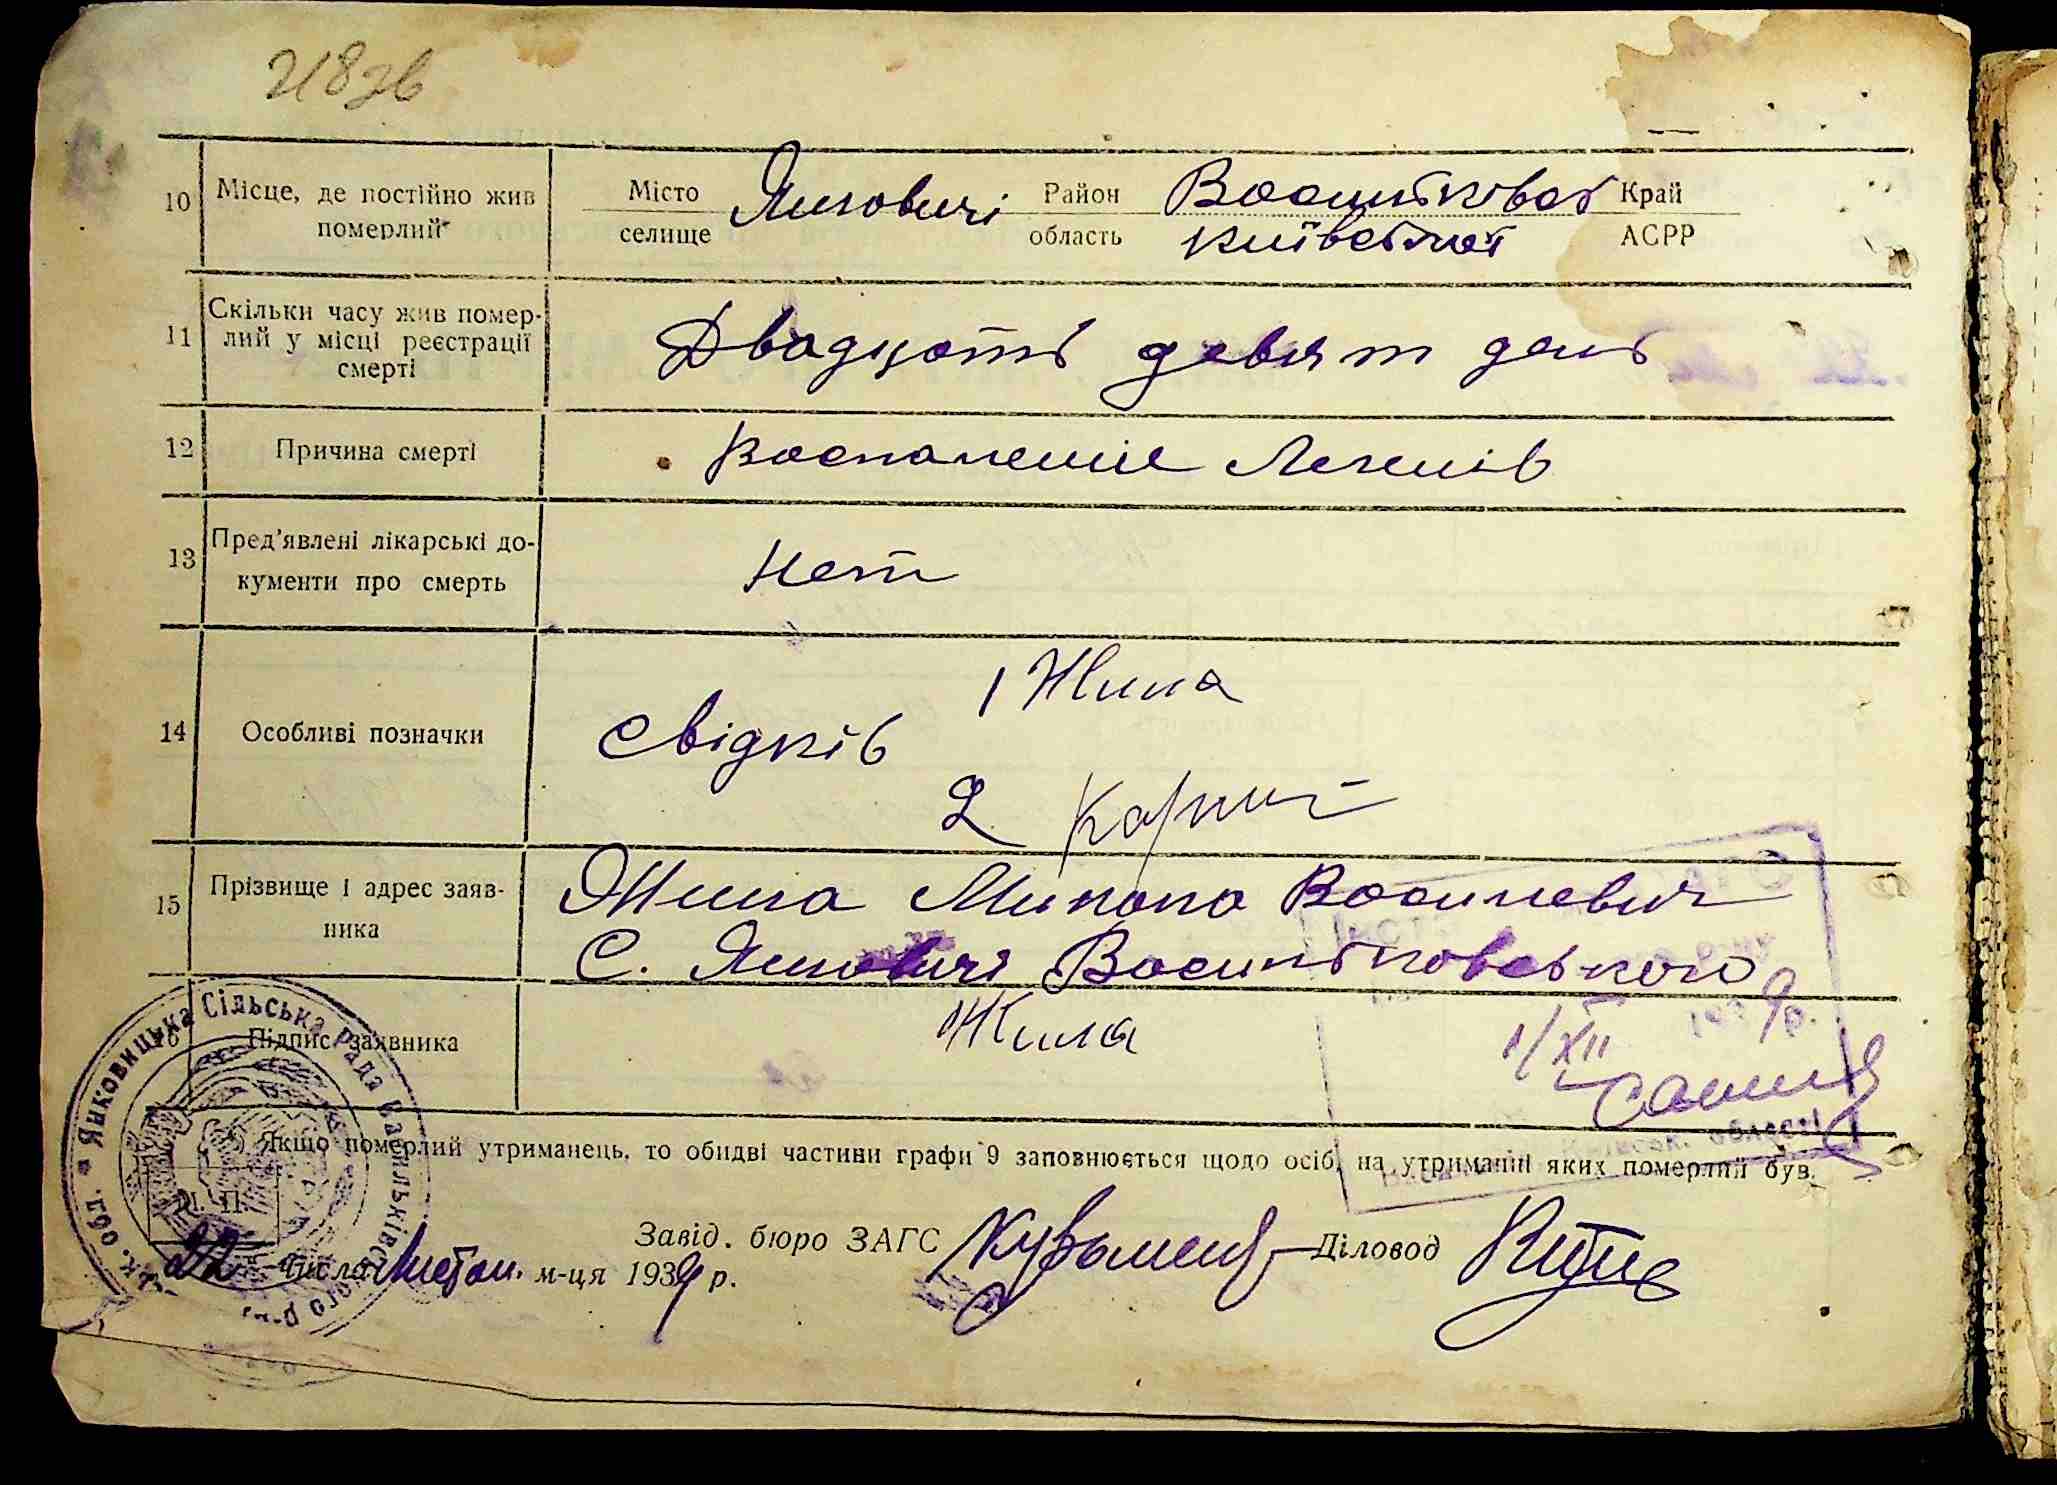 10 Місце, де постійно жив померлий
Місто селище Янковичі Район область Васильківськ Київської Край АСРР
11 Скільки часу жив помер-
лий у місці реєстрації
смерті
Двадцять девят день
12 Причина смерті
Воспаление Легенів
13 Пред'явлені лікарські до-
кументи про смерть
Нет
14 Особливі позначки
Свідків
1 Жила
2
15 Прізвище і адрес заяв-
ника
Жила Василевич
С. Янковичі Васильковського
16 Підпис заявника
Жила
1/XII
*) Якщо померлий утриманець, то обидві частини графи 9 заповнюється щодо осіб, на утриманні яких померлий був.
Завід. бюро ЗАГС
Діловод
М. П.
22 числа Листоп. м-ця 1939 р.
Янковицька Сільська рада Васильківського р-ну
област